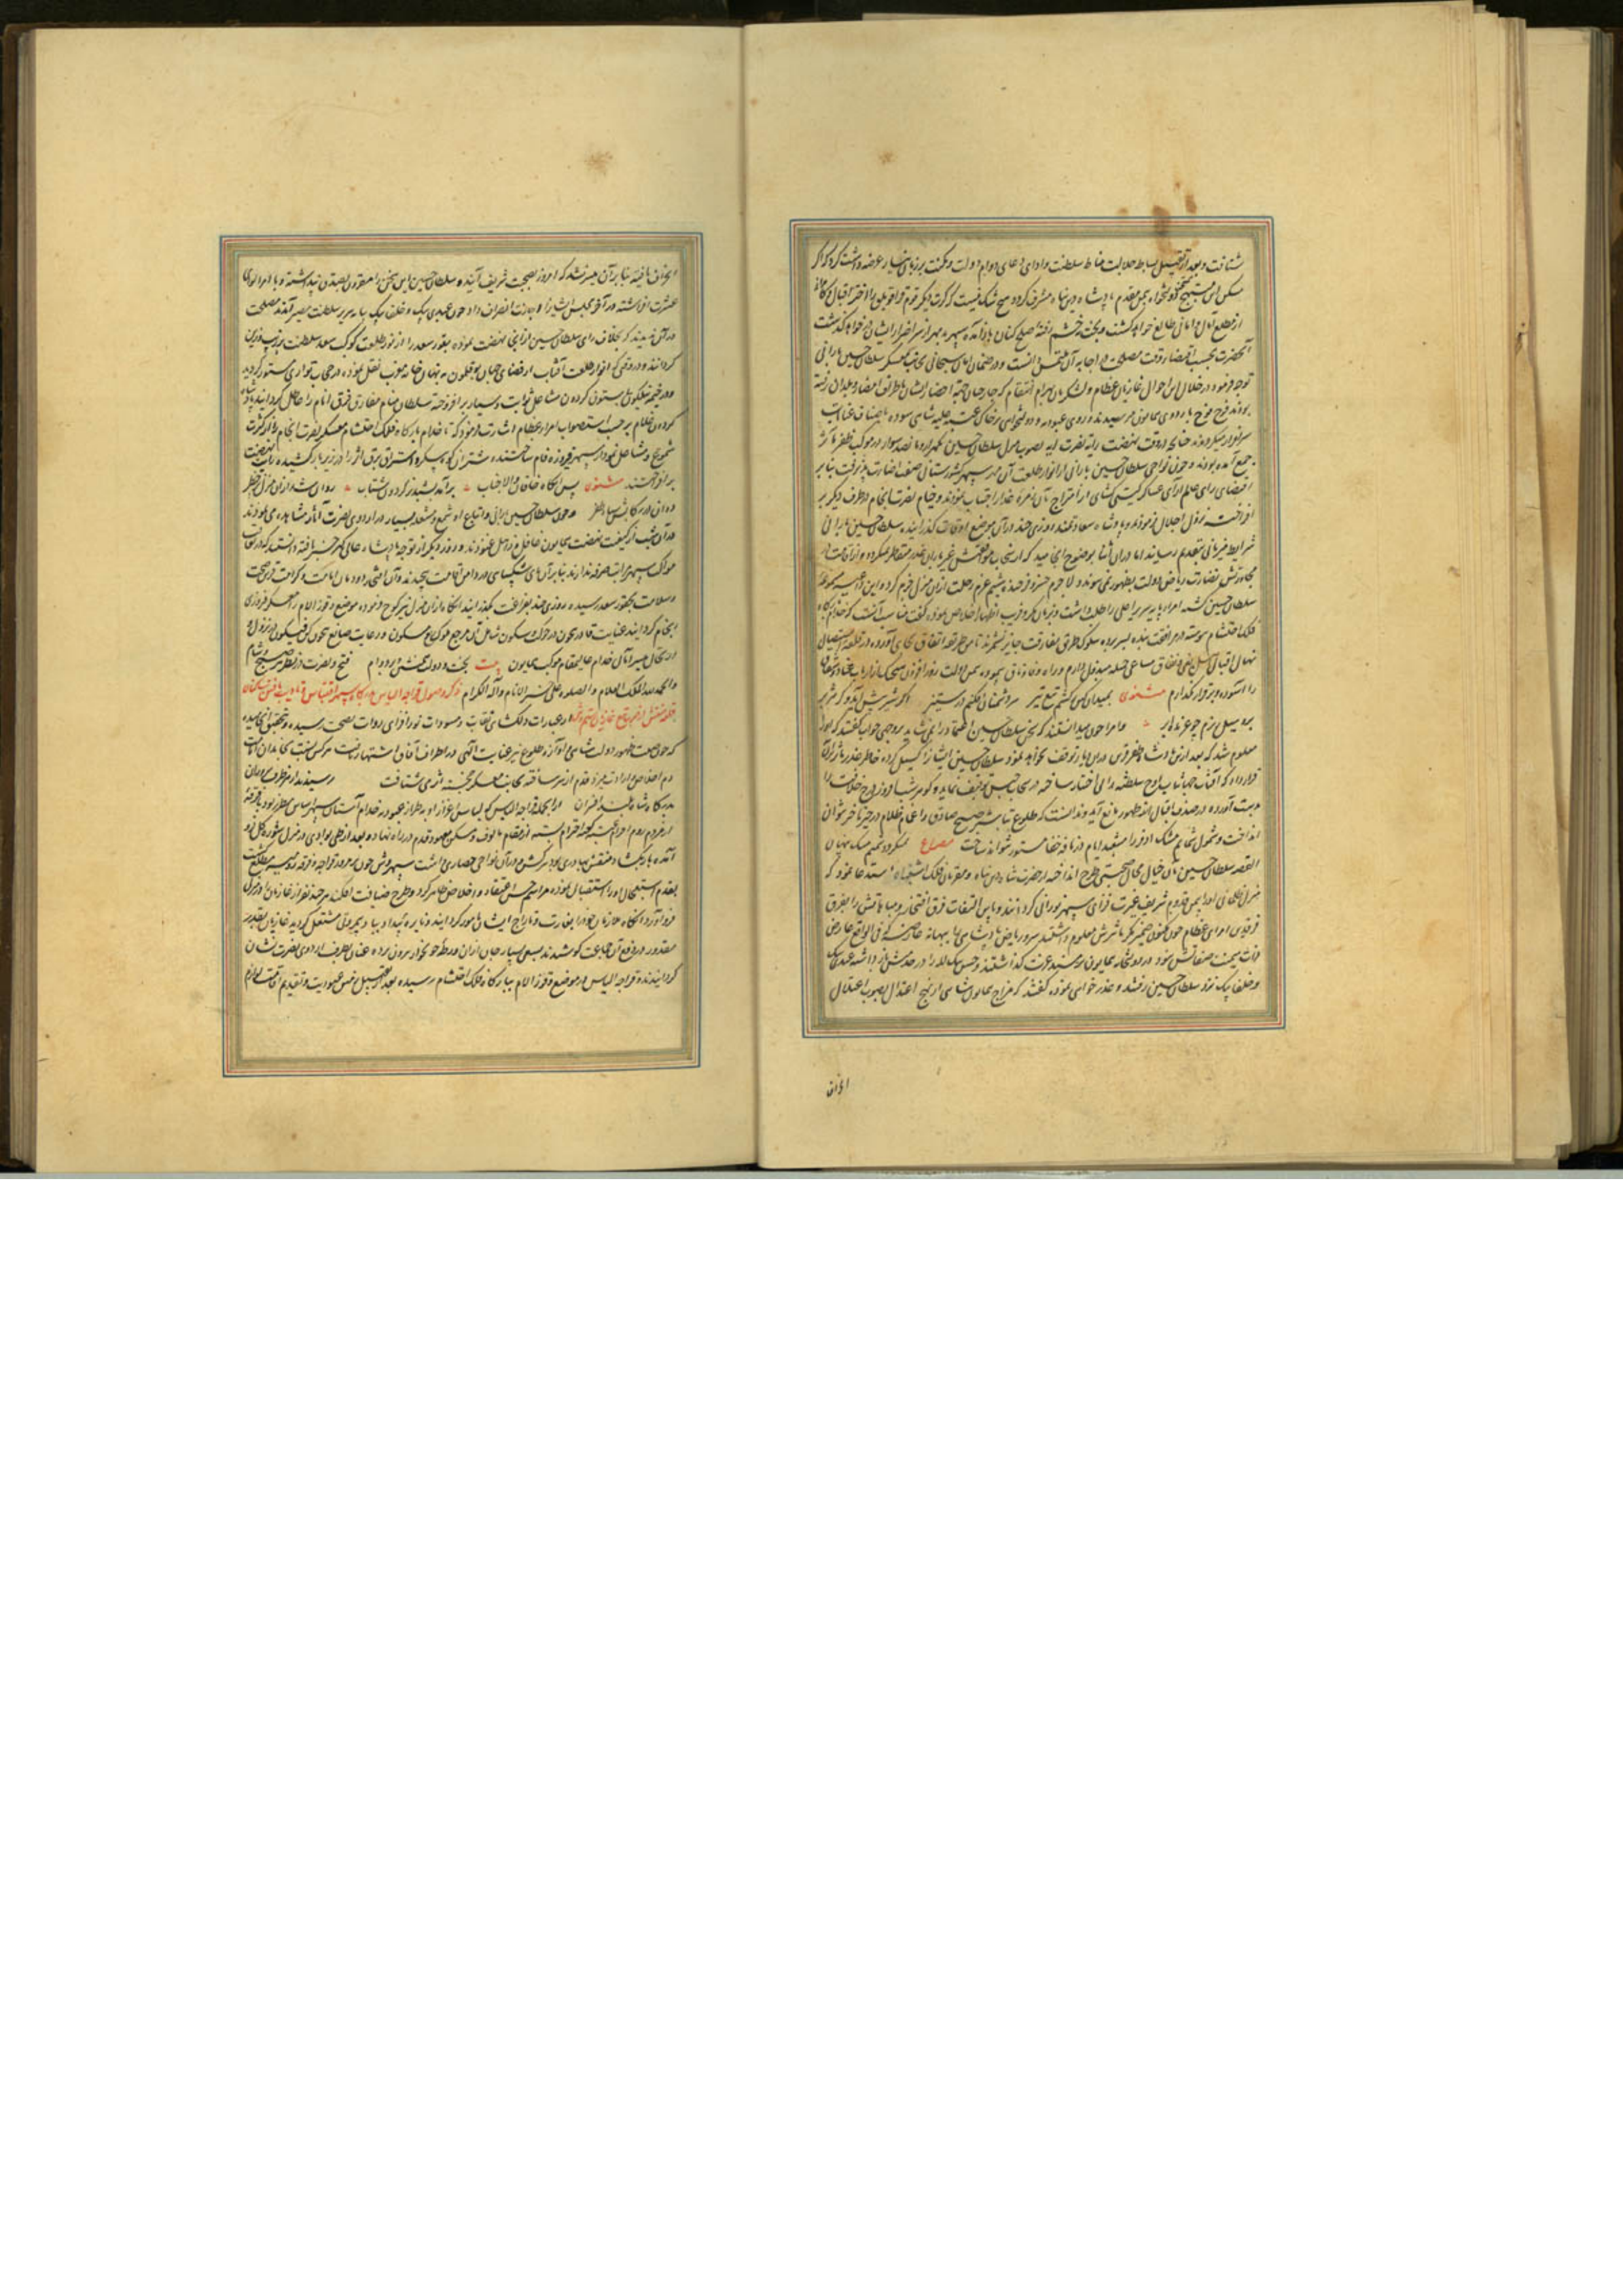 شتافت و بعد از تقبیل بساط جلالت مناط سلطنت و ادای دعای دوام دولت و مکنت بر زبان نیاز عرضه داشت کرد که اگر
مسکن این دولتخواه بیمن مقدم پادشاه دین پناه مشرف گردد هیچ شک نیست که
از مطلع آمال و امانی طالع خواهد گشت و بخت
آنحضرت بحسب اقتضاء وقت مصلحت در اجابه آن ملتمس دانست و در ضمان امان سبحانی بجانب معسکر سلطان حسین بارانی
توجه فرمود و در خلال این احوال غازیان عظام و لشکریان بهرام انتقام که جارچیان جهة احضار ایشان باطراف امصار و بلدان رفته
بودند فوج فوج باردوی همایون میرسیدند و روی عبودیه و دولتخواهی بر خاک عتبه علیه شاهی سوده باصناف عنایت
سرافراز میگردیدند چنانچه در وقت نهضت رایت نصرت آیه بصوب منزل سلطان حسین یکهزار و پانصد سوار در موکب ظفر مآثر
جمع آمده بودند و چون نواحی سلطان حسین بارانی از انوار طلعت آن مهر سپهر کشورستانی صفت اضاءت پذیرفت بنابر
اقتضای رای عالم آرای عساکر گیتی گشای از امتزاج بآن زمره غدار اجتناب نمودند و خیام نصرت انجام در طرف دیگر بر
افراختند نزول اجلال فرمودند و پادشاه سعادتمند روزی چند در آن موضع اوقات گذرانیده سلطان حسین بارانی
شرایط میزبانی بتقدیم رسانید اما در آن اثنا بوضوح انجامید که از سحاب موافقتش غیر باران غدر متقاطر نمیگردد و از آفتاب
مجاورتش نضارت ریاض دولت بظهور نمی پیوندد لاجرم خسرو فرخنده شیم عزم رحلت ازین منزل جزم کرده این داعیه مسموع
سلطان حسین گشته امراء پایه سریر اعلی را طلب داشت و بزبان مکر و فریب اظهار اخلاص نموده گفت مناسب آنست که خدام بارگاه
فلک احتشام پیوسته در مرافقت بنده بسر برده سلوک طریق مفارقت جایز نشمرند تا من طریقه اتفاق بجای آورده در قلع و استیصال
نهال اقبال اهل بغی و نفاق مساعی جمیله مبذول دارم و راه وفا و وفاق پیموده بیمن دولت روز افزون
را آسوده و برقرار نگذارم مثنوی بمیدان کین گر کشم تیغ تیز سر دشمنان افکنم در ستیز اگر شیر پیش آید و گر هژبر
بر و سیل ریزم چو غرنده ابر و امرا چون میدانستند که سخن سلطان حسین اعتماد را نمی شاید بر وجهی جواب گفتند که او را
معلوم شد که بعد ازین پادشاه ظفر قرین درین دیار توقف نخواهد نمود سلطان حسین ایشان را گسیل کرده خاطر غدر مآثر بر آن
قرار داد که آفتاب جهانتاب اوج سلطنت را
بدست آورده در صدف اقبال از ظهور مانع آید و ندانست که طلوع تباشیر صبح صادق را غمام ظلام در حیز تاخیر نتوان
انداخت و شمول شمایم مشک اذفر را مشعبد ایام در نافه خفا مستور نتواند ساخت مصراع نمیگردد شمیم مشک پنهان
القصه سلطان حسین بآن خیال محال طرح صحبتی انداخته از حضرت شاه دین پناه و مقربان فلک اشتباه استدعا نمود که
منزل ظلمانی او را بیمن قدوم شریف غیرت افزای سپهر نورانی گردانند و باین التفات فرق افتخار و مباهاتش را بفرق
فرقدان امرای عظام چون مکنون ضمیر مکر تاثیرش معلوم داشتند سرور ریاض پادشاهی را ببهانه عارضه که فی الواقع عارض
ذات میمنت صفاتش نبود در دولتخانه همایون بر مسند عزت گذاشتند و حسین بیک لله را در خدمتش باز داشته عبدی بیک
و خلفا بیک نزد سلطان حسین رفتند و عذرخواهی نموده گفتند که مزاج همایون شاهی از نهج اعتدال بصوب اعتلال
انحراف
انحراف یافته بنابر آن میسر نشد که امروز بصحبت شریف آیند و سلطان حسین این سخن را مقرون بصدق پنداشته و با امرا لوای
عشرت افراشته در آخر مجلس ایشان را اجازت انصراف داد و چون عبدی بیک و خلفا بیک بپایه سریر سلطنت مصیر آمدند مصلحت
در آن دیدند که بخلاف رای سلطان حسین از آنجا نهضت نموده
گردانند و در وقتی که انوار طلعت آفتاب از فضای جهان بوقلمون به نهان خانه مغرب نقل نموده در حجاب تواری مستور گردید
و در خیمه نیلگون بی ستون گردون مشاعل ثوابت و سیار بر افروخته سلطان شام مفارق فرق انام را مظلل گردانید پادشاه
گردون غلام بر حسب استصواب امراء عظام اشارت فرمود که تا خدام بارگاه فلک احتشام معسکر نصرت انجام را از کثرت
شموع و مشاعل نمودار سپهر فیروزه فام ساختند و شتران کوه پیکر و استران برق اثر را در زیر بار کشیده رایت نهضت
بر افراختند مثنوی پس آنگاه خاقان والا جناب برآمد بشبدیز گردون شتاب روان شد از آن منزل پر خطر
دوان در رکابش سپاه ظفر و چون سلطان حسین بارانی و اتباع او شمع و مشعله بسیار در اردوی نصرت آثار مشاهده می نمودند
در آن شب از کیفیت نهضت همایون غافل و ذاهل غنودند و روز دیگر از توجه پادشاه عالی گهر خبر یافته دانستند که از تعاقب
موکب سپهر مراتب صرفه ندارند بنابر آن پای شکیبایی در دامن اقامت پیچیدند و آن اختر دودمان امامت و کرامت قرین صحت
و سلامت بچقور سعد رسیده روزی چند بفراغت گذرانید آنگاه از آن منزل نیز کوچ فرموده موضع دوقوز الام را معسکر فیروزی
انجام گردانید عنایت قادر بیچون در حرکت و سکون شامل حال
ارتحال میسر آمال خدام عالیمقام موکب همایون بیت بخت و دولت همنشین بر دوام فتح و نصرت در نظر هر صبح و شام
والحمد لله الملک العلام والصلوة علی خیر الانام وآله الکرام ذکر وصول قراجه الیاس بدرگاه سپهر اقتباس و تادیب یافتن ساکنان
قلعه منتش از ضرب تیغ غازیان بهرام قهر در عبارات دلگشای ثقات و مسودات نور افزای روات بصحت رسیده و بتحقیق انجامیده
که چون صیت ظهور دولت شاهی و آوازه طلوع نیر عنایت الهی در اطراف آفاق اشتهار یافت هر کس نسبت بخاندان امامت
دم اخلاص و ارادت میزد قدم از سر ساخته بجانب معسکر خجسته اثر می شتافت رسیدند از هر طرف سروران
بدرگاه شاه بلند افسران از آنجمله قراجه الیاس که لباس اعزاز او بطراز عبودیه خدام آستان سپهر اساس مطرز بود با فرقه
از مردم روم احرام عتبه کعبه احترام بسته از مقام مالوف و مسکن معهود قدم در راه نهاده بعد از طی بوادی در منزل شوره گل فرود
آمده بار بگشاد و منتش بهادری بود سرکش و در آن نواحی حصاری داشت سپهروش چون بر مرور قراجه و فرقه روم
بقدم استعجال او را استقبال نموده مراسم حسن اعتقاد و اخلاص ظاهر کرد و طرح ضیافت افکنده هر چند نفر از غازیان را در منزلی
فرود آورد آنگاه ملازمان خود را بغارت و تاراج ایشان مامور گردانید و نایره بیداد بباد بیمروتی مشتعل گردید غازیان بقدر
مقدور در دفع آن جماعت کوشیدند بسعی بسیار جان از آن ورطه خونخوار بیرون برده عنان بطرف اردوی نصرت نشان
گردانیدند و قراجه الیاس در موضع دوقوز الام ببارگاه فلک احتشام رسیده بعد از تقبیل ارض عبودیت و تقدیم اقامت لوازم